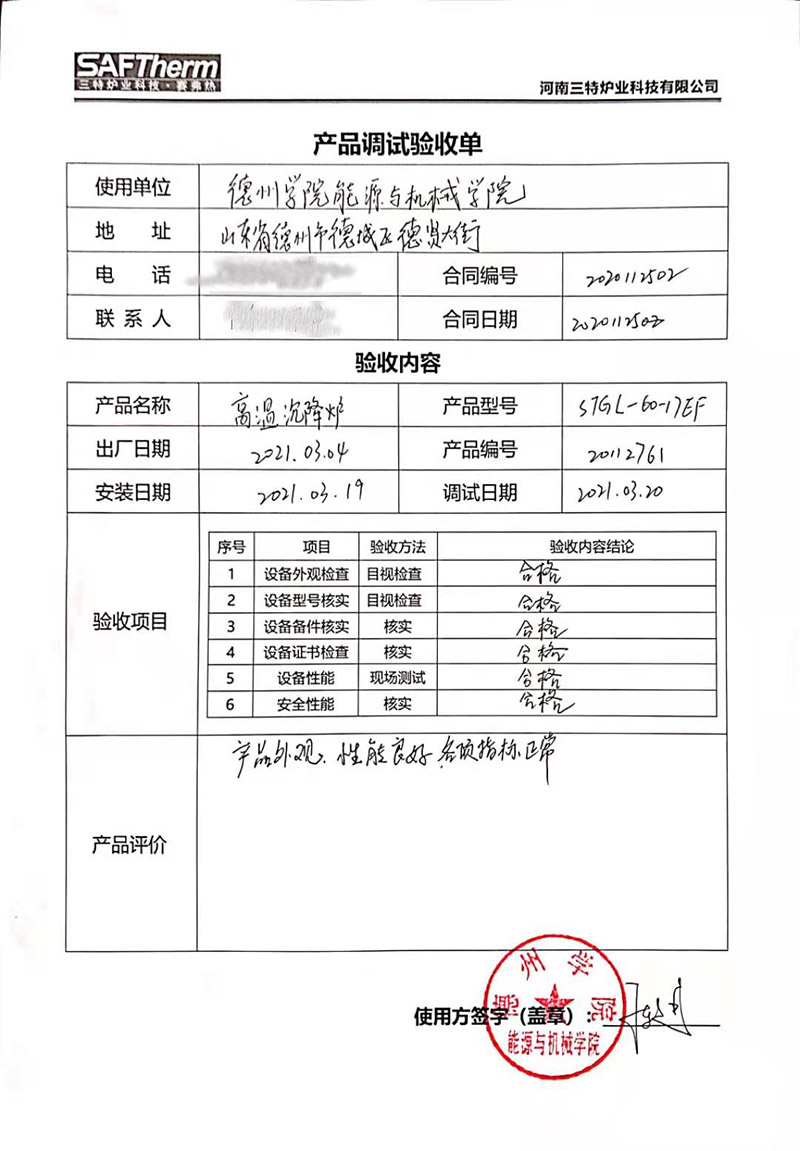 SAFTherm
三特炉业科技·赛弗热
河南三特炉业科技有限公司
产品调试验收单
使用单位 德州学院能源与机械学院
地 址 山东省德州市德城区德贤大街
电 话 合同编号 2020112502
联系人 合同日期 2020112502
验收内容
产品名称 高温沉降炉 产品型号 STGL-60-17EF
出厂日期 2021.03.04 产品编号 20112761
安装日期 2021.03.19 调试日期 2021.03.20
验收项目
序号 项目 验收方法 验收内容结论
1 设备外观检查 目视检查 合格
2 设备型号核实 目视检查 合格
3 设备备件核实 核实 合格
4 设备证书检查 核实 合格
5 设备性能 现场测试 合格
6 安全性能 核实 合格
产品评价 产品外观、性能良好 各项指标正常
使用方签字（盖章）：
德州学院
能源与机械学院